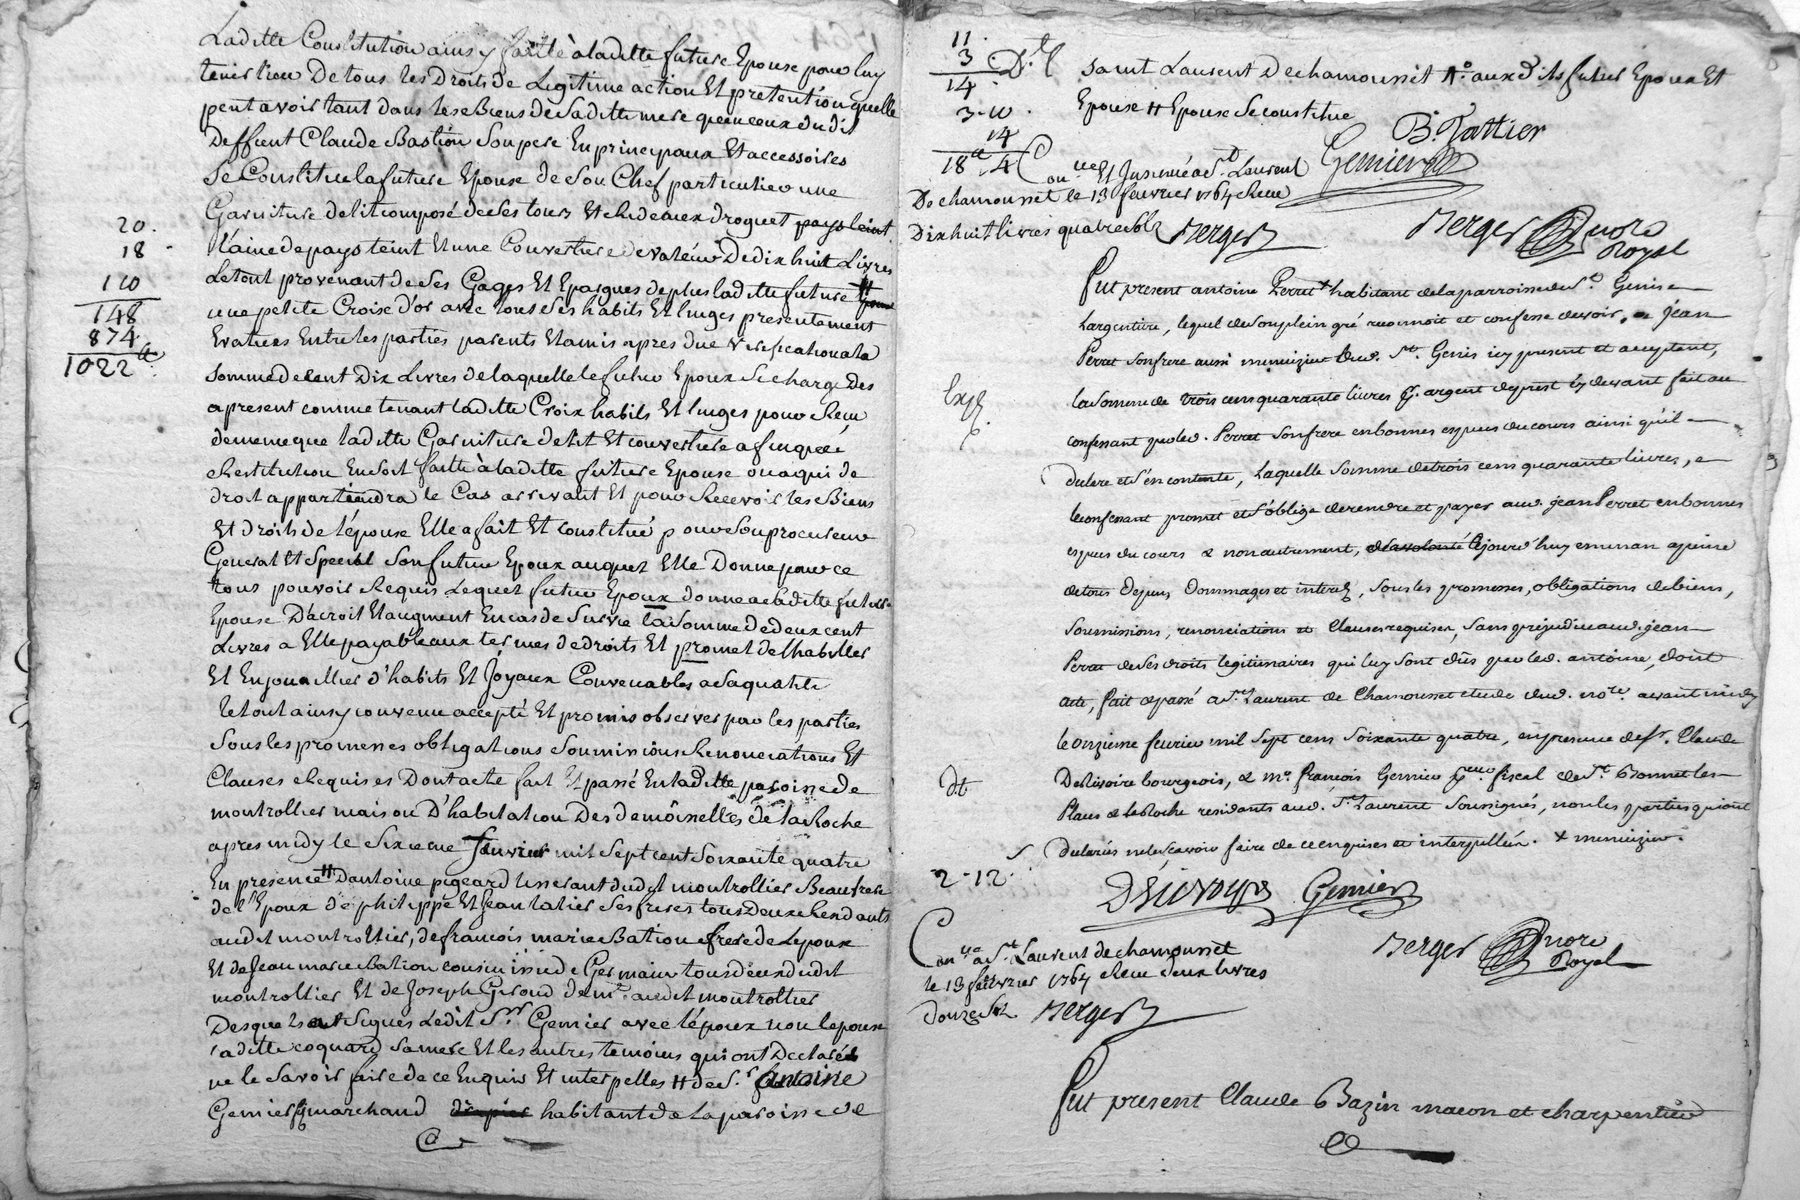 Laditte Constitution ainsy faitte à laditte future Epouse pour luy
tenir lieu De tous les Droits de Legitime action Et pretention quelle
peut avoir tant dans les Biens de Saditte mere que en ceux du dit
Deffunt Claude Bastion Son pere En principaux Et accessoires
Se Constitue la future Epouse de Son Chef particulier une
Garniture de lit composé de Ses tours Et Rideaux droguet pays teint
Laine de pays teint Et une Couverte de valeur De dix huit Livres
Le tout provenant de Ses Gages Et Epargnes de plus laditte future #
une petite Croix D'or avec tous Ses habits Et linges presentement
Evalués Entre les parties parents Et amis apres due verification a la
Somme de Cent Dix Livres de laquelle le futur Epoux Se charge Des
a present comme tenant laditte Croix habits Et linges pour Reçu
de meme que laditte Garniture de lit Et couverture afin que
Restitution En Soit faitte à laditte future Epouse ou a qui de
droit appartiendra le Cas arrivant Et pour Recevoir les Biens
Et droits de l'épouse Elle a fait Et constitué pour Son procureur
General Et Special Son futur Epoux auquel Elle Donne pour ce
tous pouvoir Requis Lequel futur Epoux donne a laditte future
Epouse D'acroit Et augment En cas de Survie la Somme de deux cent
Livres a Elle payable aux termes de droits Et promet de l'habiller
Et Enjoualler d'habits Et Joyaux Convenables a Sa qualité
le tout ainsy convenu accepté Et promis observer par les parties
Sous les promesses obligations Soumissions Renonciations Et
Clauses Requises Dont acte fait Et passé En laditte paroisse de
montrottier maison D'habitation Des demoiselles de la Roche
apres midy le Sixieme fevrier mil Sept cent Soixante quatre
En presence # D'antoine pigeard tisserant dudit montrottier Beaufrere
de l'Epoux de philippe Et Jean tatier Ses freres tous deux Residants
audit montrottier, de francois marie Bation frere de L'epouse
Et de Jean marie Bation cousin issu de Germain tous deux dudit
montrottier Et de Joseph Giroud de m.e audit montrottier
Desquels ont Signés Ledit S.r Gemier avec l'époux non l'epouse
laditte coquard Sa mere Et les autres temoins qui ont Declarés
ne le Savoir faire de ce Enquis Et interpelles # de S.r antoine
Gemier marchand habitant de la paroisse de
20.
18
110
148
874
1022 #
11.
3
14
3.10.
14
18 # 4
D.t
Saint Laurent De chamousset # aux d its futur Epoux Et
Epouse # Epouse Se constitue
B. Tattier
Gemier
Con.lle Et Insinué a S.t Laurent
De chamousset le 13 fevrier 1764 Reçu
Dix huit livres quatre sols Berger
Berger nore
Royal
Fut present antoine Perret + habitant de la parroisse de S.t Genis
Largentiere, lequel de Son plein gré reconnoit et confesse devoir, a jean
Perret Son frere aussi menuizier dud. S.t Genis icy present et acceptant,
la Somme de trois cent quarante livres p. argent de prest cy devant fait au
confessant par led. Perret Son frere en bonnes especes du cours ainsi qu'il
declare et s'en contente, Laquelle Somme de trois cent quarante livres, le
confessant promet et s'oblige de rendre et payer aud. jean Perret en bonnes
especes du cours & non autrement, d'aujourd'huy en un an a peine
de tous depens, Dommages et interets, Sous les promesses, obligations de biens,
Soumissions, renonciations et Clauses requises, Sans prejudice aud. jean
Perret de Ses droits legitimaires qui luy Sont dûs par led. antoine, dont
acte, fait & passé a S.t Laurent de Chamousset etude dud. no.re avant midy
le onzieme fevrier mil Sept cent Soixante quatre, en presence de S.r Claude
Delivoire bourgeois, & m.e françois Gemier p.reur fiscal de S.t Bonnet les
Places & la Roche residants aud. S.t Laurent Soussignés, non les parties qui ont
declarés ne le Scavoir faire de ce enquises et interpellées. + menuizier
Exp.
dt
2-12.
Delivoyre Gemier
Con.lle a S.t Laurent de chamousset
le 13 fevrier 1764 Reçu deux livres
Douze S. Berger
Berger nore
Royal
Fut present Claude Bazin macon et charpentier